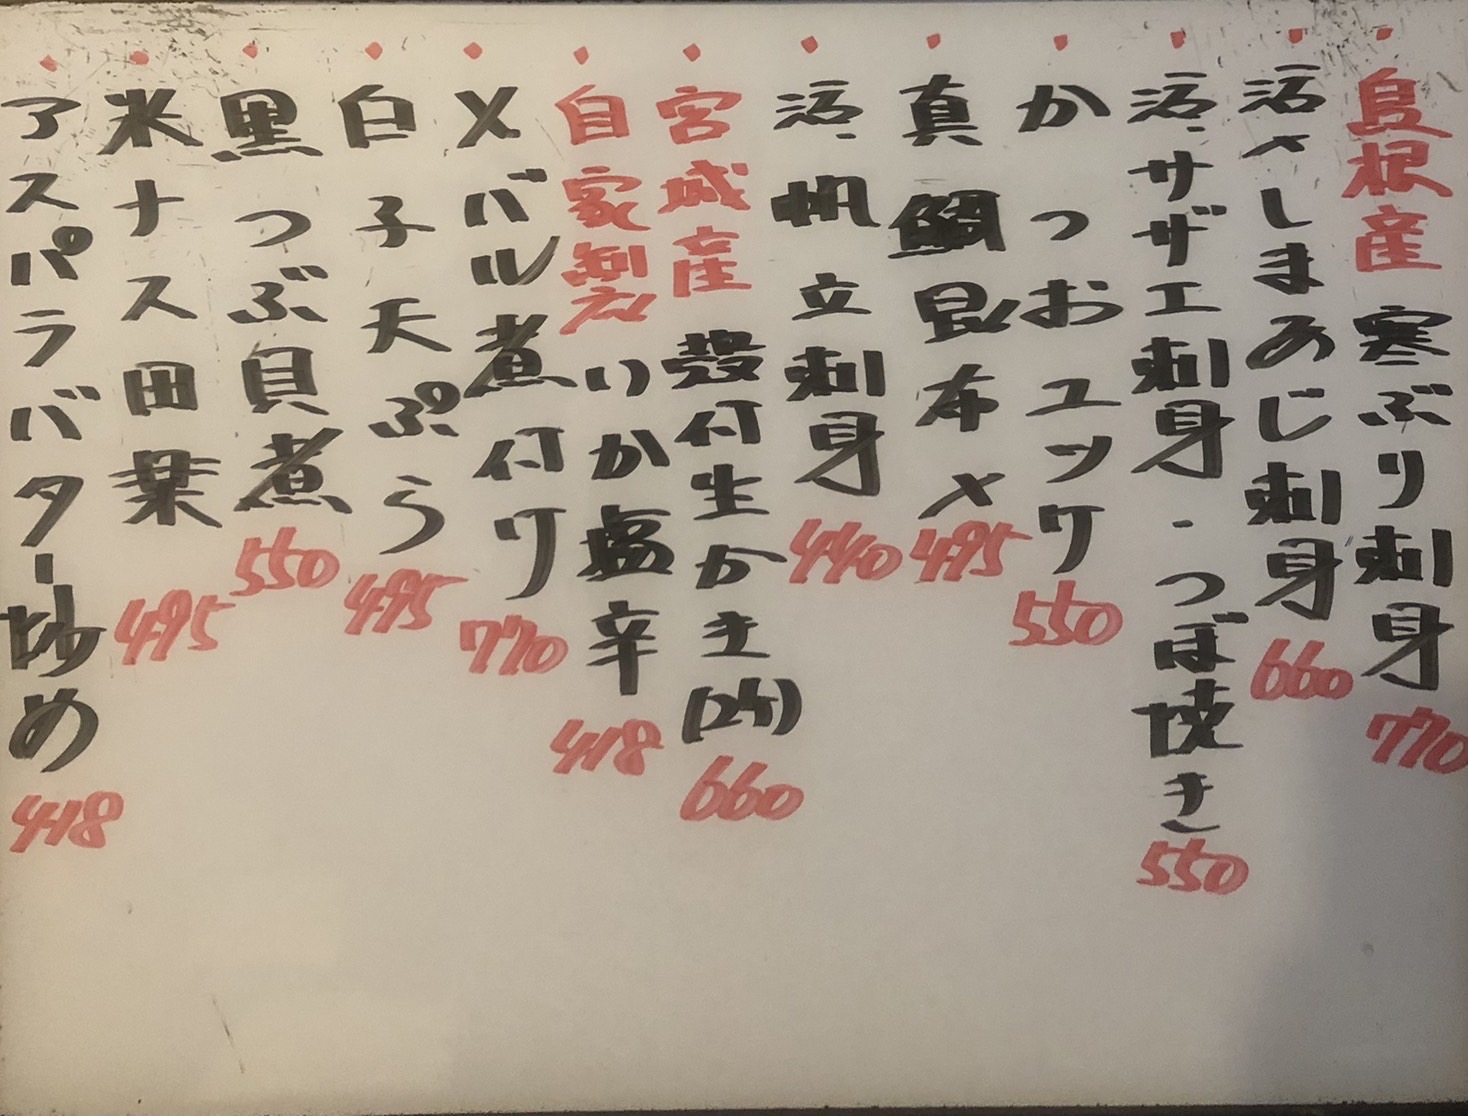 ・島根産 寒ぶり刺身 770
・活〆しまあじ刺身 660
・活、サザエ刺身・つぼ焼き 550
・かつおユッケ 550
・真鯛昆布〆 495
・活、帆立刺身 440
・宮城産 殻付生かき(2ケ) 660
・自家製いか塩辛 418
・メバル煮付け 770
・白子天ぷら 495
・黒つぶ貝煮 550
・米ナス田楽 495
・アスパラバター炒め 418